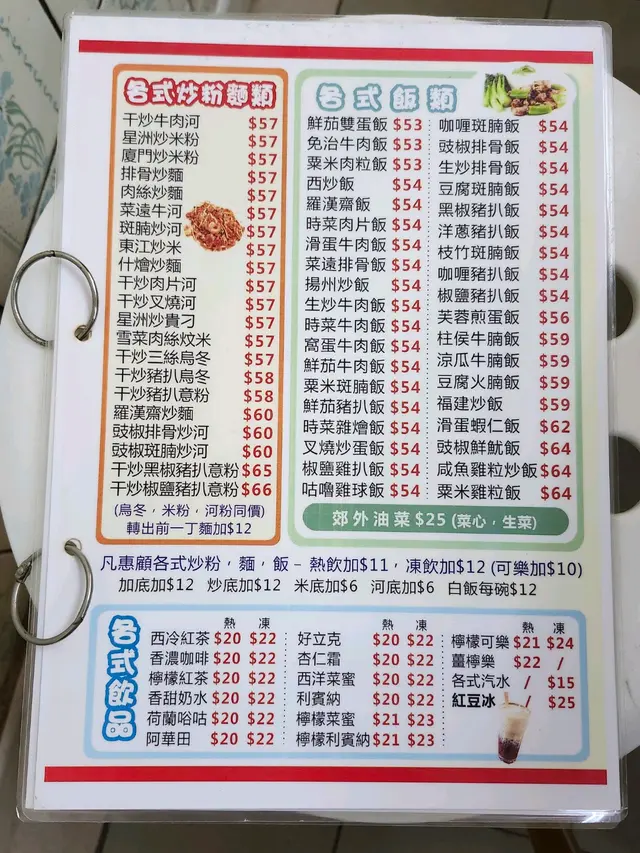 各式炒粉麵類
干炒牛肉河 $57
星洲炒米粉 $57
廈門炒米粉 $57
排骨炒麵 $57
肉絲炒麵 $57
菜遠牛河 $57
斑腩炒河 $57
東江炒米 $57
什燴炒麵 $57
干炒肉片河 $57
干炒叉燒河 $57
星洲炒貴刁 $57
雪菜肉絲炆米 $57
干炒三絲烏冬 $57
干炒豬扒烏冬 $58
干炒豬扒意粉 $58
羅漢齋炒麵 $60
豉椒排骨炒河 $60
豉椒斑腩炒河 $60
干炒黑椒豬扒意粉 $65
干炒椒鹽豬扒意粉 $66
(烏冬，米粉，河粉同價)
轉出前一丁麵加$12
各式飯類
鮮茄雙蛋飯 $53
免治牛肉飯 $53
粟米肉粒飯 $53
西炒飯 $54
羅漢齋飯 $54
時菜肉片飯 $54
滑蛋牛肉飯 $54
菜遠排骨飯 $54
揚州炒飯 $54
生炒牛肉飯 $54
時菜牛肉飯 $54
窩蛋牛肉飯 $54
鮮茄牛肉飯 $54
粟米斑腩飯 $54
鮮茄豬扒飯 $54
時菜雜燴飯 $54
叉燒炒蛋飯 $54
椒鹽雞扒飯 $54
咕嚕雞球飯 $54
咖喱斑腩飯 $54
豉椒排骨飯 $54
生炒排骨飯 $54
豆腐斑腩飯 $54
黑椒豬扒飯 $54
洋蔥豬扒飯 $54
枝竹斑腩飯 $54
咖喱豬扒飯 $54
椒鹽豬扒飯 $54
芙蓉煎蛋飯 $56
柱侯牛腩飯 $59
涼瓜牛腩飯 $59
豆腐火腩飯 $59
福建炒飯 $59
滑蛋蝦仁飯 $62
豉椒鮮魷飯 $64
咸魚雞粒炒飯 $64
粟米雞粒飯 $64
郊外油菜 $25 (菜心，生菜)
凡惠顧各式炒粉，麵，飯－熱飲加$11，凍飲加$12 (可樂加$10)
加底加$12 炒底加$12 米底加$6 河底加$6 白飯每碗$12
各式飲品
熱 凍
西冷紅茶 $20 $22
香濃咖啡 $20 $22
檸檬紅茶 $20 $22
香甜奶水 $20 $22
荷蘭唂咕 $20 $22
阿華田 $20 $22
熱 凍
好立克 $20 $22
杏仁霜 $20 $22
西洋菜蜜 $20 $22
利賓納 $20 $22
檸檬菜蜜 $21 $23
檸檬利賓納 $21 $23
熱 凍
檸檬可樂 $21 $24
薑檸樂 $22 /
各式汽水 / $15
紅豆冰 / $25